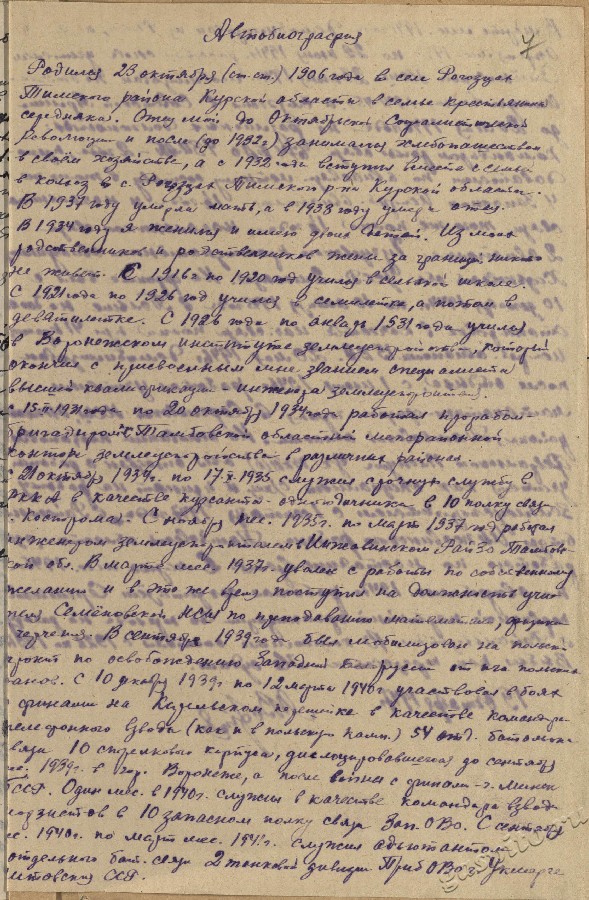 Автобиография
7
Родился 23 октября (ст. ст.) 1906 года в селе Рогозцах
Тимского района Курской области в семье крестьянина
середняка. Отец мой до Октябрьской Социалистической
Революции и после (до 1932г) занимался хлебопашеством
в своём хозяйстве, а с 1932 года вступил вместе с семьёй
в колхоз в с. Рогозцах Тимского р-на Курской области.
В 1937 году умерла мать, а в 1938 году умер и отец.
В 1934 году я женился и имею двоих детей. Из моих
родственников и родственников жены за границей никого
не живёт. С 1916г по 1920 год учился в сельской школе.
С 1921 года по 1926 год учился в семилетке, а потом в
девятилетке. С 1926 года по январь 1931 года учился
в Воронежском институте землеустройства, который
окончил с присвоенным мне званием специалиста
высшей квалификации - инженера землеустройства.
с 15 II 1931 года по 20 октября 1934 года работал прорабом-
бригадиром в Тамбовской областной межрайонной
конторе землеустройства в различных районах.
С 21 октября 1934г. по 17.X-1935 служил срочную службу в
РККА в качестве курсанта-одногодичника в 10 полку связи
г. Кострома. С ноября мес. 1935г. по март 1937 год работал
инженером землеустроителем в Инжавинском РайЗо Тамбов-
ской обл. В марте мес. 1937г. уволен с работы по собственному
желанию и в это же время поступил на должность учи-
теля Семёновской НСШ по преподаванию математики, физики
и черчения. В сентябре 1939 года был мобилизован на польский
фронт по освобождению Западной Белоруссии от ига польских
панов. С 10 декабря 1939г по 12 марта 1940г участвовал в боях
с финнами на Карельском перешейке в качестве командира
телефонного взвода (как и в польскую камп.) 54 отд. батальона
связи 10 стрелкового корпуса, дислоцировавшегося до сентября
мес. 1939г. в гор. Воронеже, а после войны с финнами - г. Минск
БССР. Один мес. в 1940г. служил в качестве командира взвода
радистов в 10 запасном полку связи Зап. ОВО. С сентября
мес. 1940г. по март мес. 1941г. служил адъютантом
отдельного бат. связи 2 танковой дивизии ПрибОВО г. Укмерге
Литовская ССР.